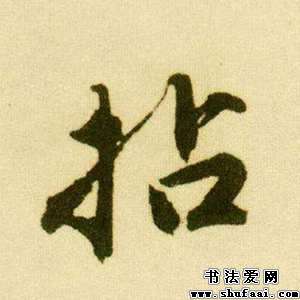 拈
书法爱网
www.shufaai.com